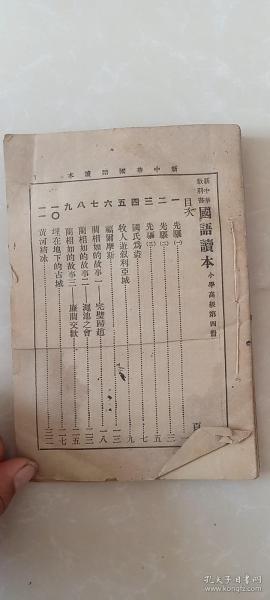 新中華國語讀本
新中華教科書 國語讀本 小學高級第四冊
目次 頁
一 先驅(一) 一
二 先驅(二) 三
三 先驅(三) 五
四 國氏爲盜 七
五 牧人遊敍利亞城 九
六 福爾摩斯 一三
七 藺相如的故事一 完璧歸趙 一八
八 藺相如的故事二 澠池之會 二三
九 藺相如的故事三 廉藺交歡 二五
一〇 埋在地下的古城 二七
一一 黃河結冰 三二
孔夫子旧书网